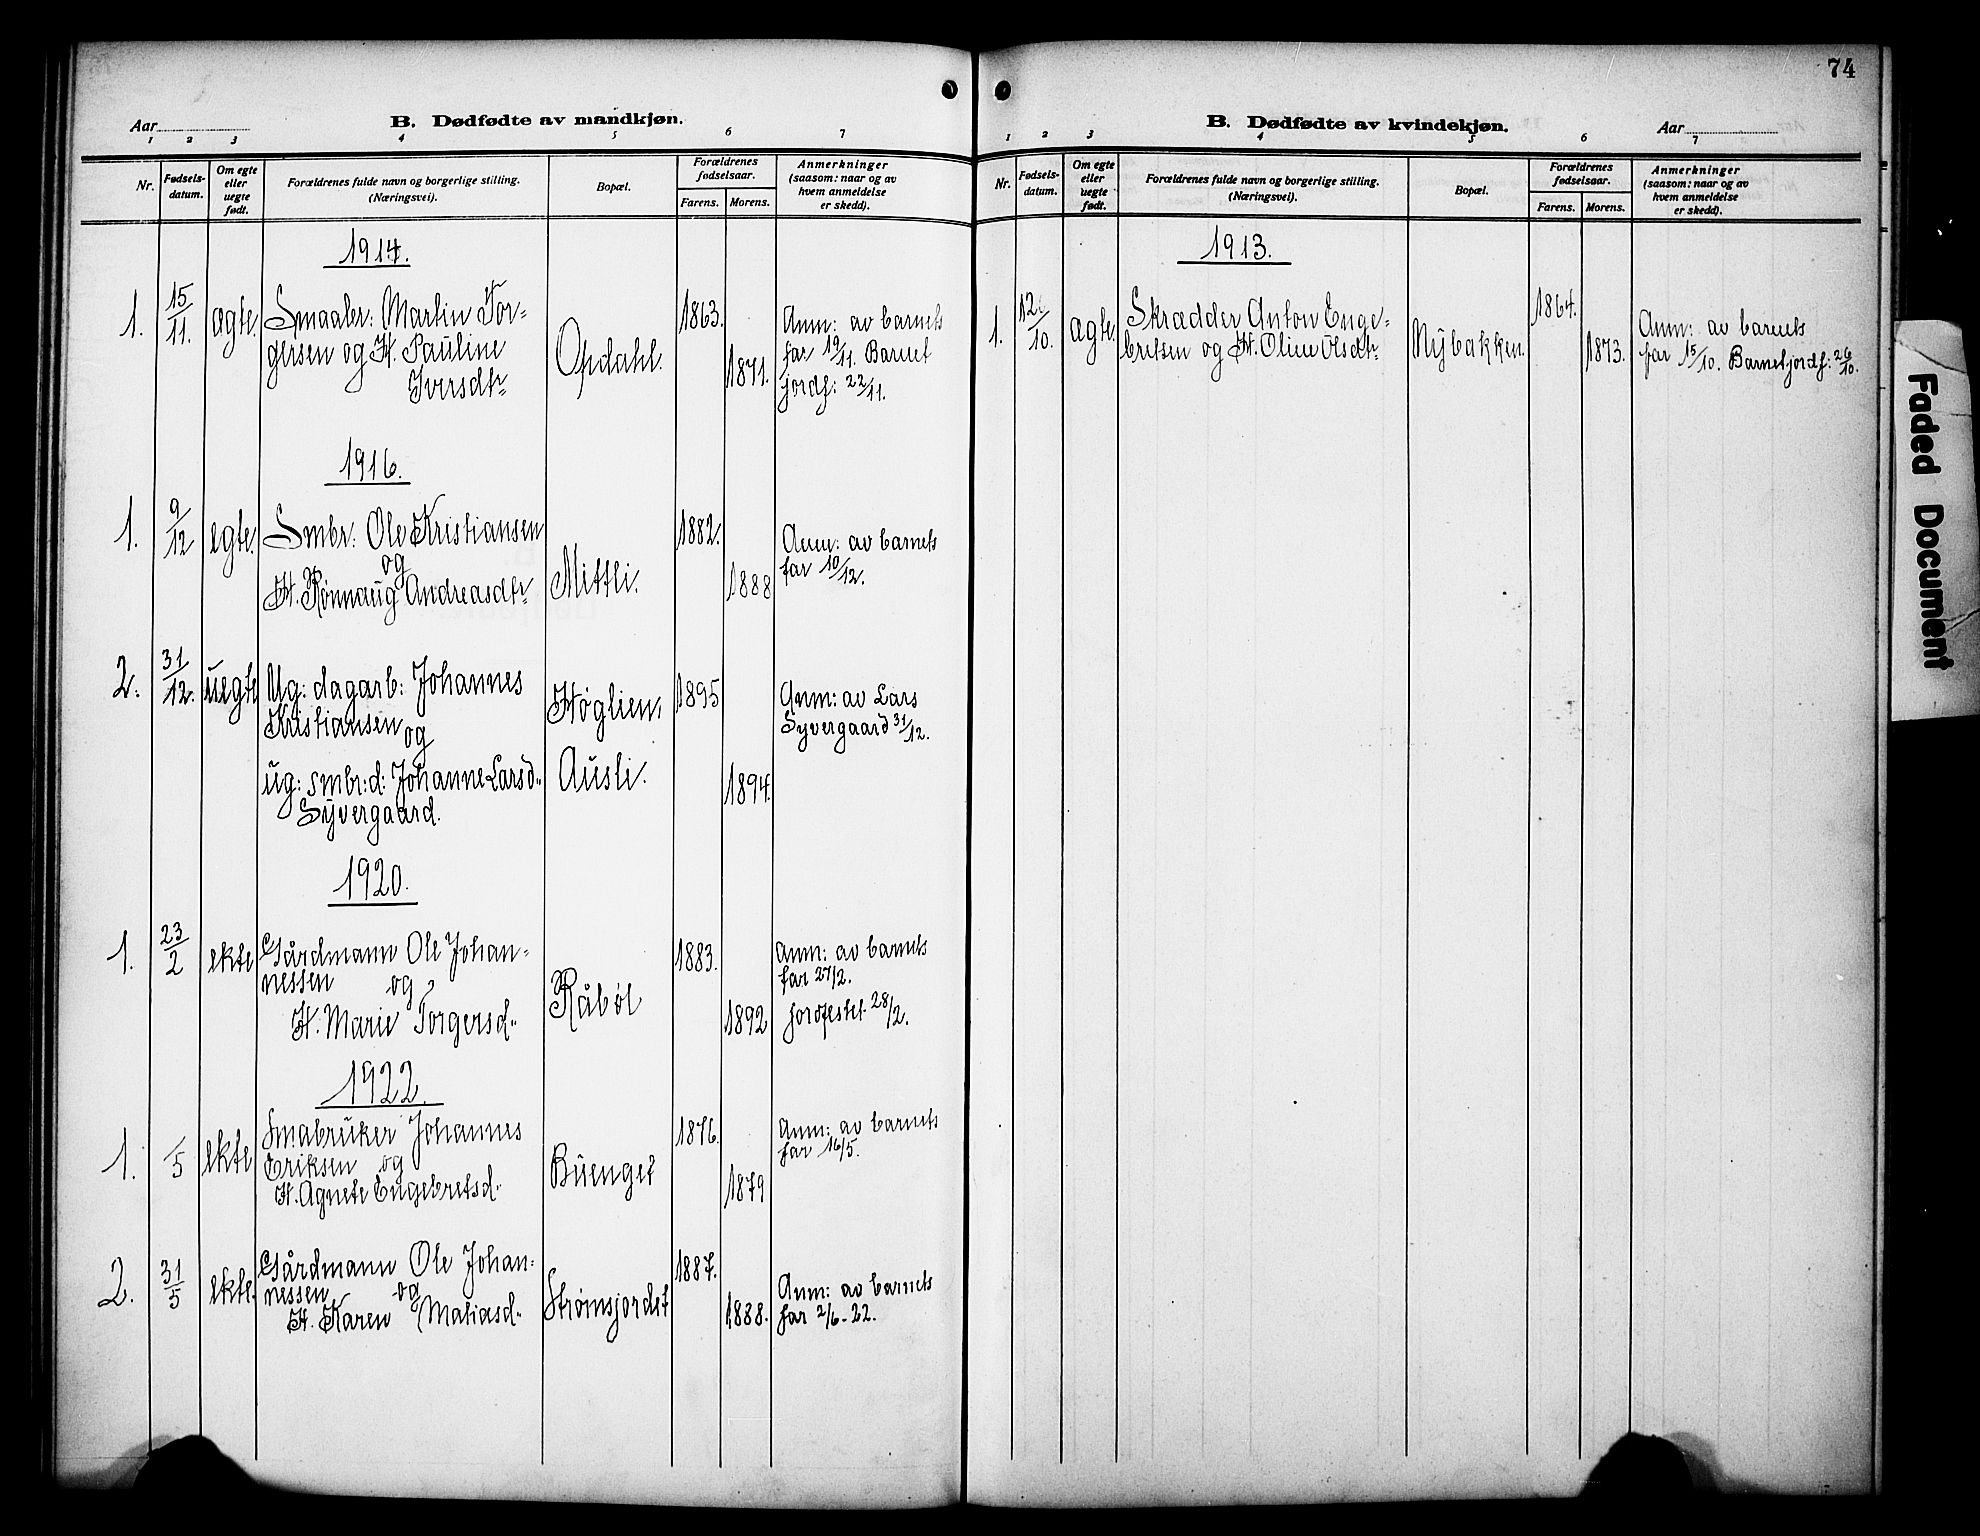 B. Dødfødte av mandkjøn.
Aar
1 2 3 4 5 6 7
Nr.
Fødsels-
datum.
Om egte
eller
uegte
født.
Forældrenes fulde navn og borgerlige stilling.
(Næringsvei).
Bopæl.
Forældrenes
fødselsaar.
Farens. Morens.
Anmerkninger
(saasom: naar og av
hvem anmeldelse
er skedd).
1914.
1. 15/11. ægte. Smaabr: Martin Tor-
gersen og H. Pauline
Iversdtr
Opdahl. 1863. 1871.
Anm: av barnets
far 19/11. Barnet
jordf: 22/11.
1916.
1. 9/12 egte. Smbr: Ole Kristiansen
og
H. Rønnaug Andreasdtr
Mittli. 1882. 1888
Anm: av barnets
far 10/12.
2. 31/12. uegte Ug: dagarb: Johannes
Kristiansen og
ug: smbr:d: Johanne Larsd..
Syvergaard.
Høglien,
Ausli.
1895 1894.
Anm: av Lars
Syvergaard 31/12.
1920.
1. 23/2 ekte Gårdmann Ole Johan-
nessen og
H. Marie Torgersd..
Råbøl 1883. 1892
Anm: av barnets
far 27/2.
Jordfestet 28/2.
1922.
1. /5 ekte Småbruker Johannes
Eriksen og
H. Agnete Engebretsd.
Buenget 1876. 1879
Anm: av barnets
far 16/5.
2. 31/5 ekte. Gårdmann Ole Johan-
nessen og
H. Karen Matiasd..
Strømsjordet 1887. 1888.
Anm: av barnets
far 2/6-22.
74
B. Dødfødte av kvindekjøn.
Aar
1 2 3 4 5 6 7
Nr.
Fødsels-
datum.
Om egte
eller
uegte
født.
Forældrenes fulde navn og borgerlige stilling.
(Næringsvei).
Bopæl.
Forældrenes
fødselsaar.
Farens. Morens.
Anmerkninger
(saasom: naar og av
hvem anmeldelse
er skedd).
1913.
1. 12/10. ægte Skrædder Anton Enge-
bretsen og H. Oline Olsdtr
Nybakken. 1864. 1873.
Anm: av barnets
far 15/10. Barnet jordf: 26/10.
Faded Document